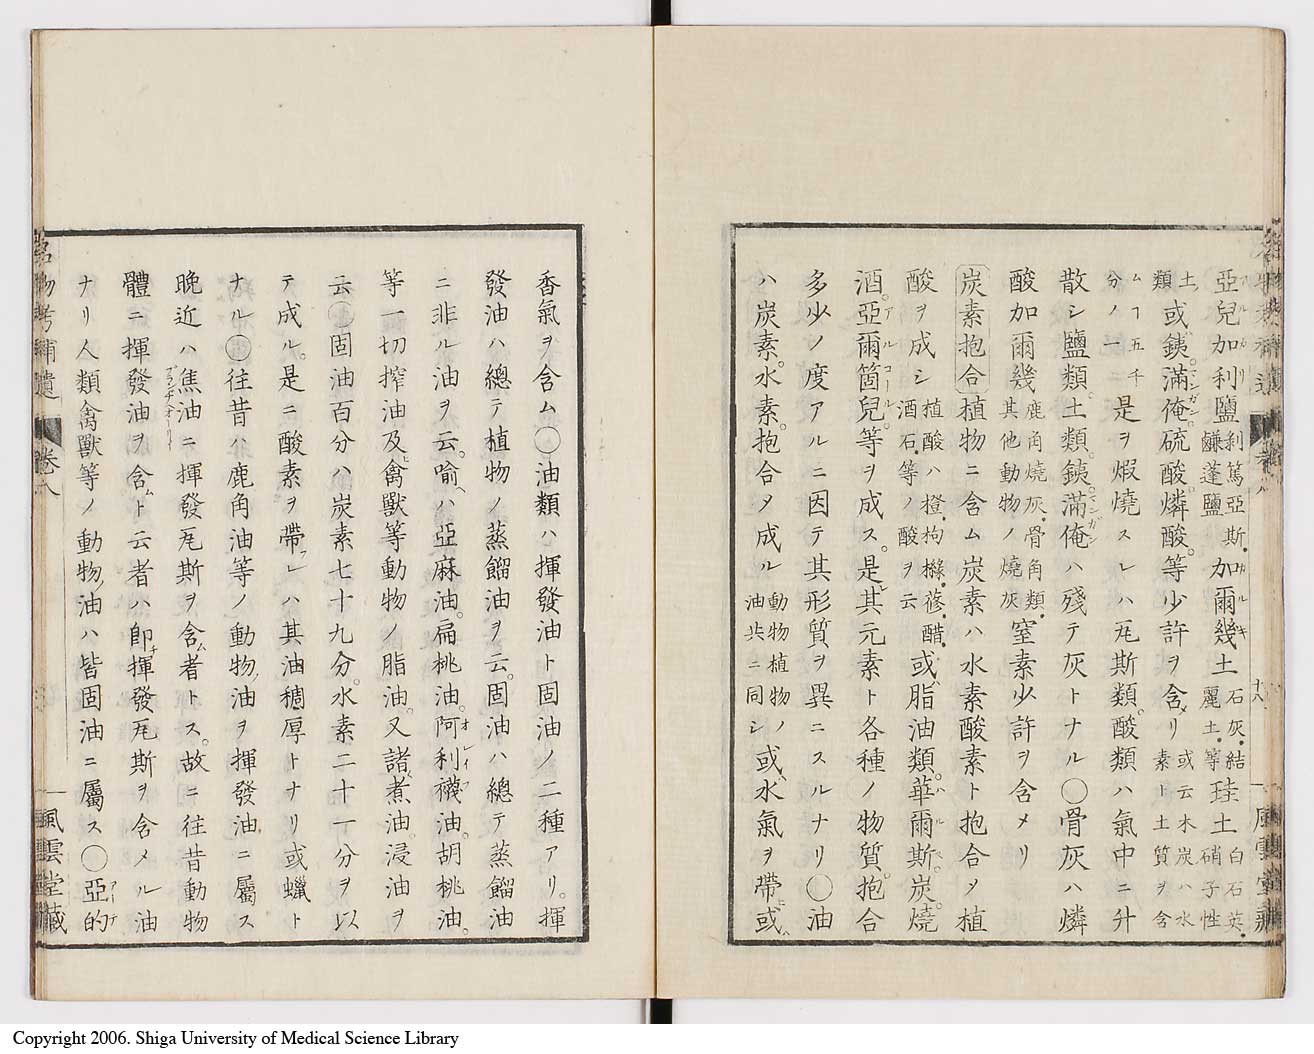 亞兒加利鹽剥篤亞斯。鹻蓬鹽加爾幾土石灰。結麗土。等珪土白石英。硝子性
土。類或銕。滿俺。硫酸。燐酸。等少許ヲ含メリ或云木炭ハ水素ト土質ヲ含
ム㆒五千分ノ一ニ是ヲ煆燒スレハ瓦斯類。酸類ハ氣中ニ升
散シ鹽類。土類。銕。滿俺ハ殘テ灰トナル〇骨灰ハ燐
酸加爾幾鹿角燒灰。骨角類。其他動物ノ燒灰窒素少許ヲ含メリ
炭素抱合植物ニ含ム炭素ハ水素酸素ト抱合ノ植
酸ヲ成シ植酸ハ橙。枸櫞。蓚。醋。酒石。等ノ酸ヲ云或ハ脂油類。華爾斯。炭燒
酒。亞爾箇兒。等ヲ成ス。是レ其元素ト各種ノ物質。抱合
多少ノ度アルニ因テ其形質ヲ異ニスルナリ〇油
ハ炭素。水素。抱合タ成ル動物植物ノ油共ニ同シ或ハ水氣ヲ帶ヒ或ハ
香氣ヲ含ム〇油類ハ揮發油ト固油ノ二種アリ。揮
發油ハ總テ植物ノ蒸餾油ヲ云。固油ハ總テ蒸餾油
ニ非ル油ヲ云。喩ヘハ亞麻油。扁桃油。阿利襪油。胡桃油。
等一切搾油及ヒ禽獸等動物ノ脂油。又諸煮油。浸油ヲ
云〇固油百分ハ炭素七十九分。水素二十一分ヲ以
テ成ル。是ニ酸素ヲ帶フレハ其油穠厚トナリ或蠟ト
ナル〇往昔ハ鹿角油等ノ動物油ヲ揮發油ニ屬ス
晩近ハ焦油ニ揮發瓦斯ヲ含ム者トス。故ニ往昔動物
體ニ揮發油ヲ含ムト云者ハ卽チ揮發瓦斯ヲ含メル油
ナリ人類禽獸等ノ動物油ハ皆固油ニ屬ス〇亞的
名物考補遺 卷八
風雲堂藏
十八
Copyright 2006. Shiga University of Medical Science Library